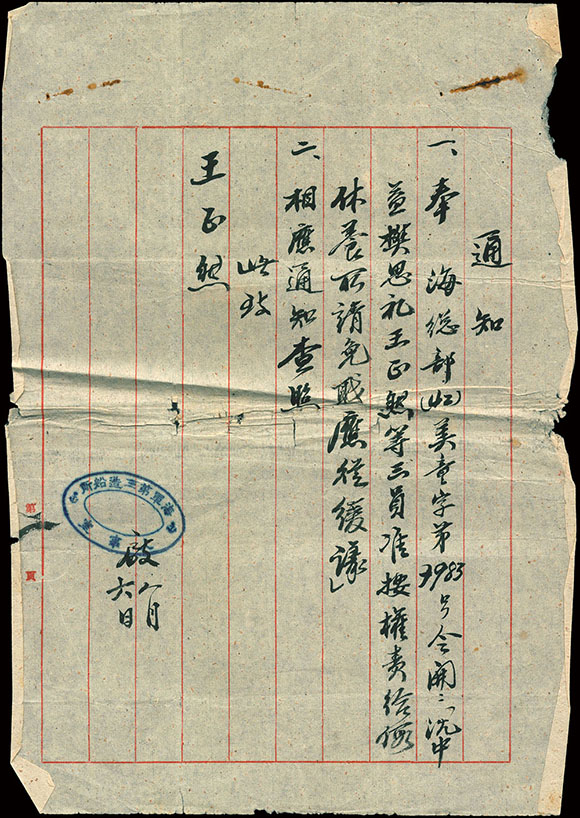 通知
一、奉 海總部(　)美童字第3983号令開：「沈中
益樊思礼王正然等三員准按權責給假
休養所請免職應從緩議」
二、相應通知查照
此致
王正然
海軍第三造船所
啟 八月
六日
第 頁